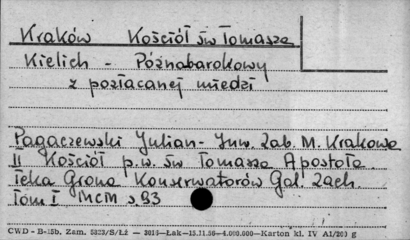 Kraków Kościół św Tomasza
Kielich - Późnabarokowy
z pozłacanej miedzi
Pagaczewski Julian - Inw. Zab. M. Krakowa
II Kościół p.w. św Tomasza Apostoła.
Teka Grona Konserwatorów Gal. Zach.
tom I MCM s. 93
CWD - B-15b, Zam. 5823/S/Lż - 3016-Łak-15.11.56-4.000.000-Karton kl. IV A1/200 g